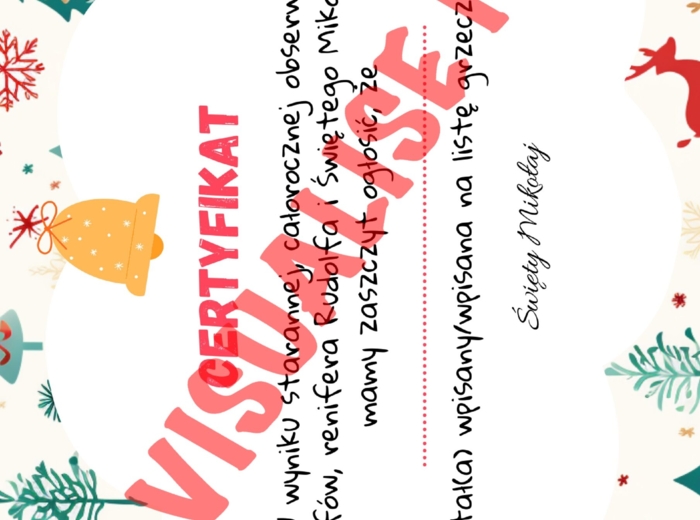 CERTYFIKAT
wyniku starannej, całorocznej obserw
fów, renifera Rudolfa i Świętego Miko
mamy zaszczyt ogłosić, że
tał(a) wpisany/wpisana na listę grzecz
Święty Mikołaj
VISUALISE